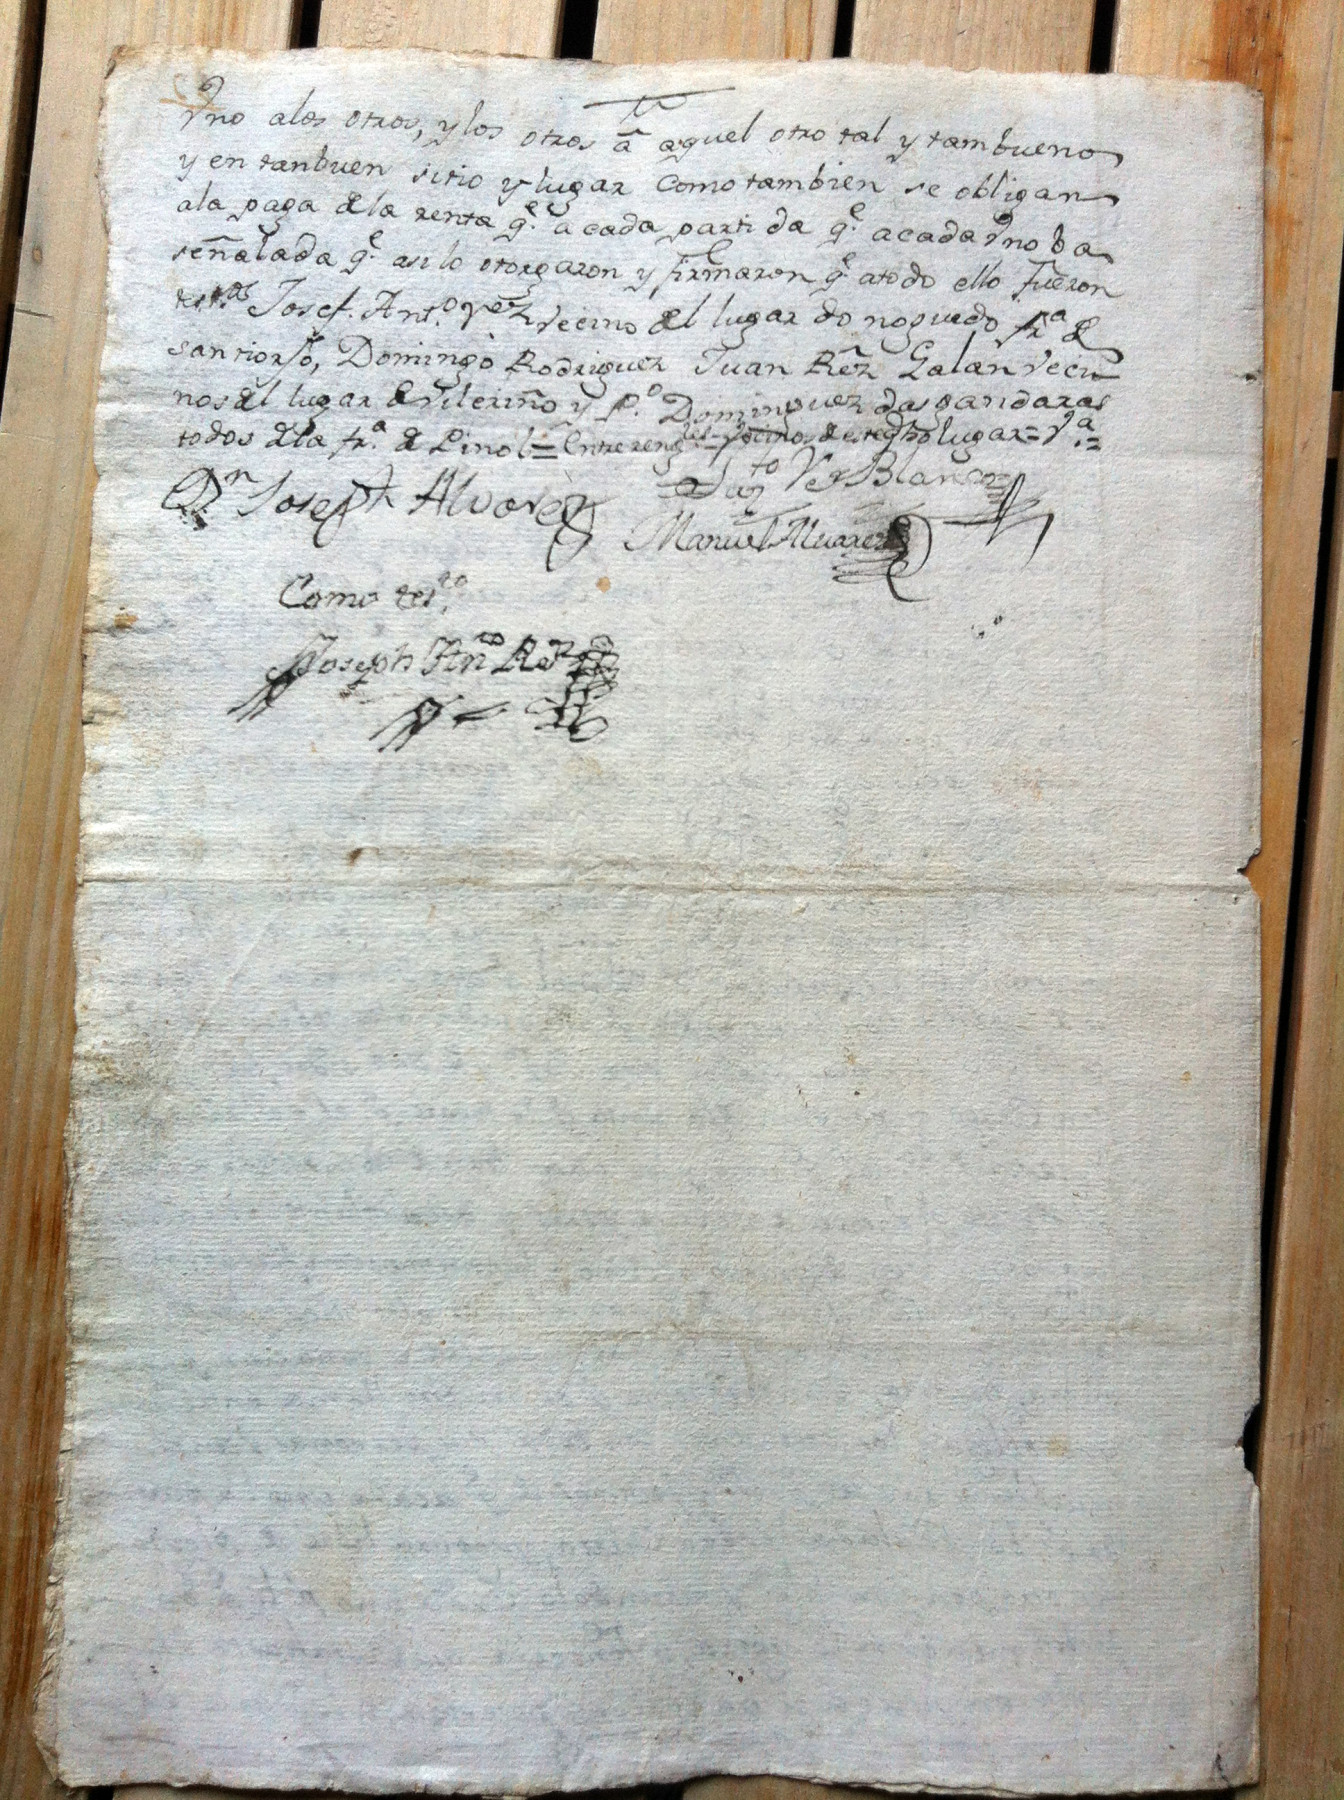 Vno alos otros, y los otros â aquel otro tal y tambueno
y en tanbuen sitio y lugar como tambien se obligan
ala paga dela renta q.e a cada partida q.e acada vno ba
señalada q.e asi lo otorgaron y firmaron q.e atodo ello fueron
test.os Josef Ant.o Vecino del lugar do noguedo fr.a de
santiorjo, Domingo Rodriguez Juan Rêz Galan veci-
nos del lugar de Vileriño y P.o Dominguez das gandaras
todos dela fr.a de Pinol = Entrereng.s vecinos deste dho lugar = V.a =
Dn Joseph Alvarez
Blanco
Manuel Alvarez
Como tes.to
Joseph Anto Rez